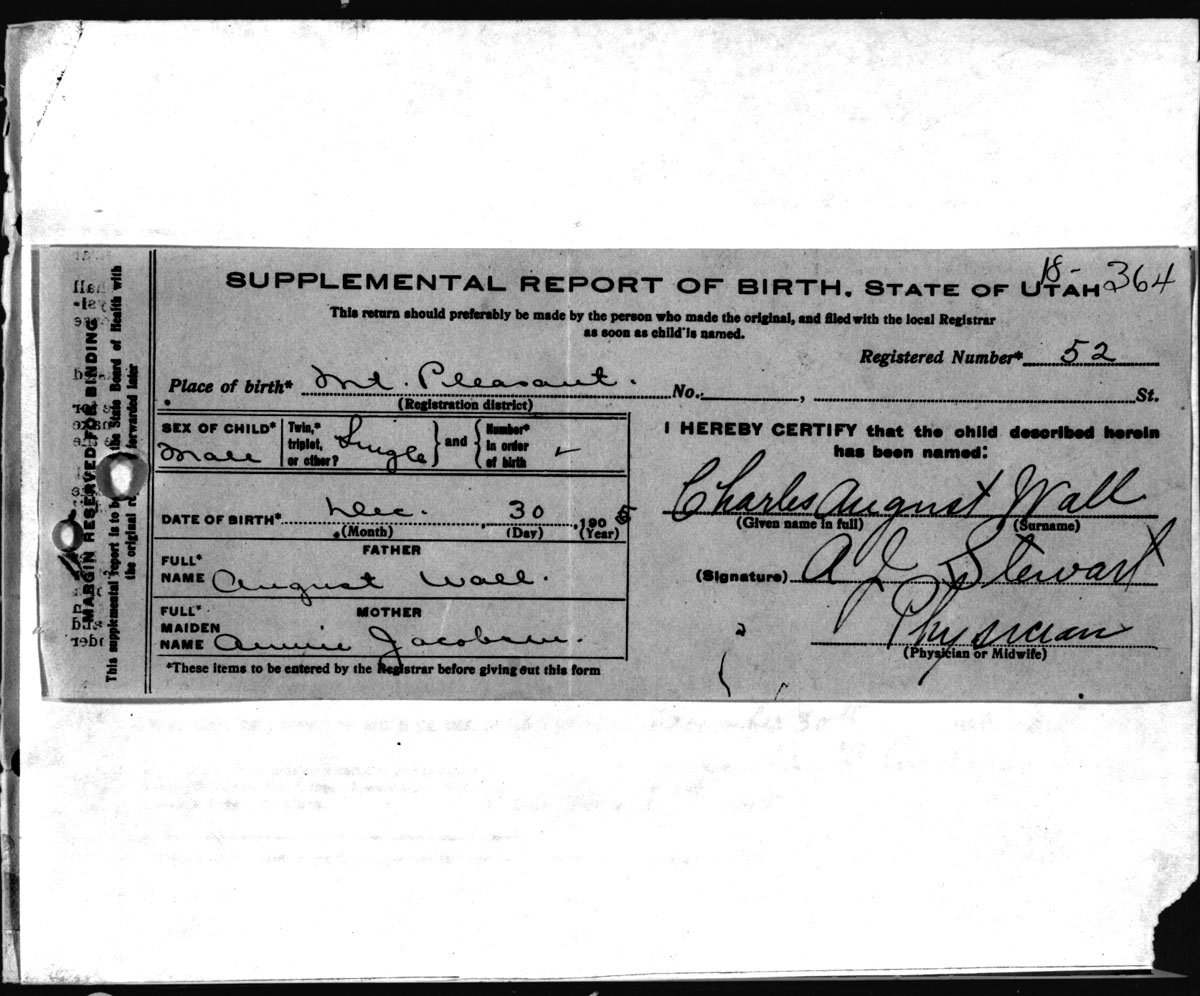 SUPPLEMENTAL REPORT OF BIRTH, STATE OF UTAH 18-364
This return should preferably be made by the person who made the original, and filed with the local Registrar
as soon as child is named.
Registered Number* 52
Place of birth* Mt. Pleasant. No. , St.
(Registration district)
SEX OF CHILD* Male
Twin,* triplet, or other? Single and Number* in order of birth
DATE OF BIRTH* Dec. 30, 1905
(Month) (Day) (Year)
FATHER
FULL* NAME August Wall.
MOTHER
FULL* MAIDEN NAME Annie Jacobsen.
*These items to be entered by the Registrar before giving out this form
I HEREBY CERTIFY that the child described herein
has been named:
Charles August Wall
(Given name in full) (Surname)
(Signature) A J Stewart
Physician
(Physician or Midwife)
MARGIN RESERVED FOR BINDING
This supplemental report is to be the State Board of Health with
the original forwarded later